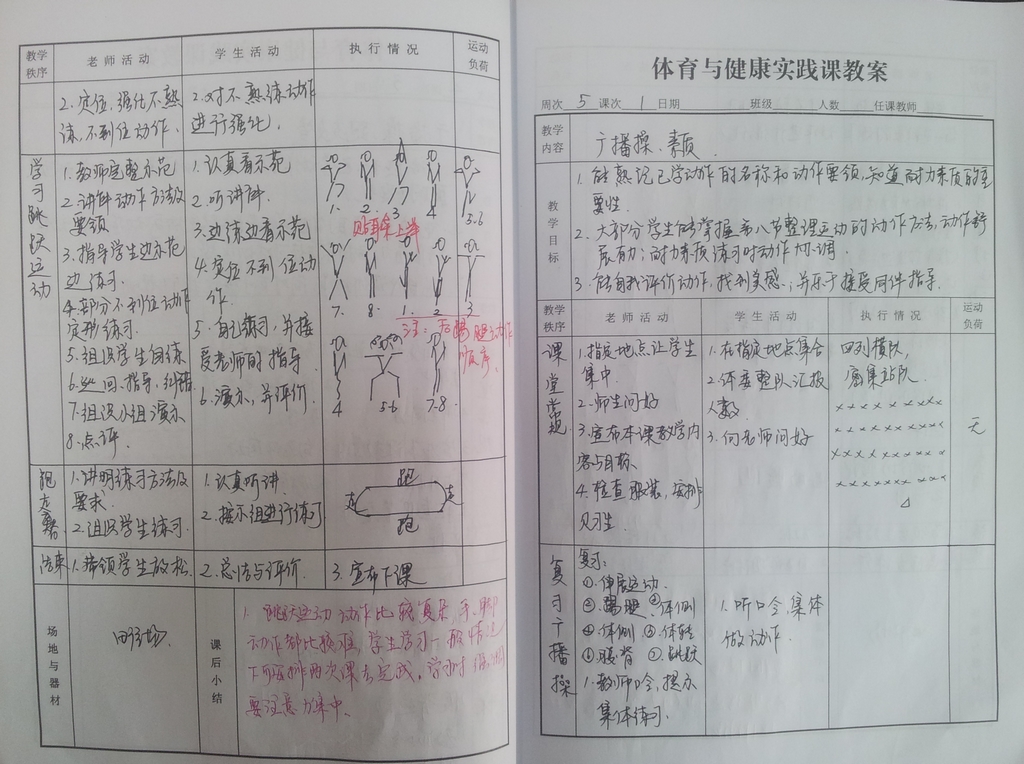 教学秩序 老师活动 学生活动 执行情况 运动负荷
2.定位,强化不熟练,不到位动作.
2.对不熟练动作进行强化.
学习跳跃运动
1.教师完整示范
2.讲解动作方法及要领
3.指导学生边示范边练习.
4.部分不到位动作定形练习.
5.组识学生自练
6.巡回,指导,纠错
7.组识小组演示
8.点评.
1.认真看示范
2.听讲解.
3.边练边看示范
4.定位不到位动作.
5.自己练习,并接受老师的指导
6.演示,并评价.
1. 2. 3 4 5.6
7. 8. 1. 2 3
4 5.6 7-8.
顺序.
1.讲明练习方法及要求.
2.组识学生练习.
1.认真听讲.
2.按示组进行练习
跑
走 走
跑
结束 1.带领学生放松. 2.总结与评价. 3.宣布下课
场地与器材
田径场.
课后小结
1.跳跃运动动作比较复杂,手、脚
动作都比较难,学生学习一般情况
下可安排两次课去完成,学习时
要注意力集中.
体育与健康实践课教案
周次 5 课次 1 日期 班级 人数 任课教师
教学内容 广播操、素质.
教学目标
1.能熟记已学动作的名称和动作要领,知道耐力素质的重
要性.
2.大部分学生能掌握第八节整理运动的动作方法,动作舒
展有力;耐力素质练习时动作协调.
3.能自我评价动作,找到美感;并乐于接受同伴指导.
教学秩序 老师活动 学生活动 执行情况 运动负荷
课堂常规
1.指定地点让学生集中.
2.师生问好
3.宣布本课教学内容与目标.
4.检查服装,安排见习生.
1.在指定地点集合
2.体委整队汇报人数.
3.向老师问好
四列横队,
密集站队.
××××××××
××××××××
××××××××
××××××××
△
无
复习广播操
复习:
①.伸展运动.
②.踢腿 ③.体侧
④.体侧 ⑤.体转
⑥.腰背 ⑦.跳跃
1.教师口令,提示
集体练习.
1.听口令,集体
做动作.